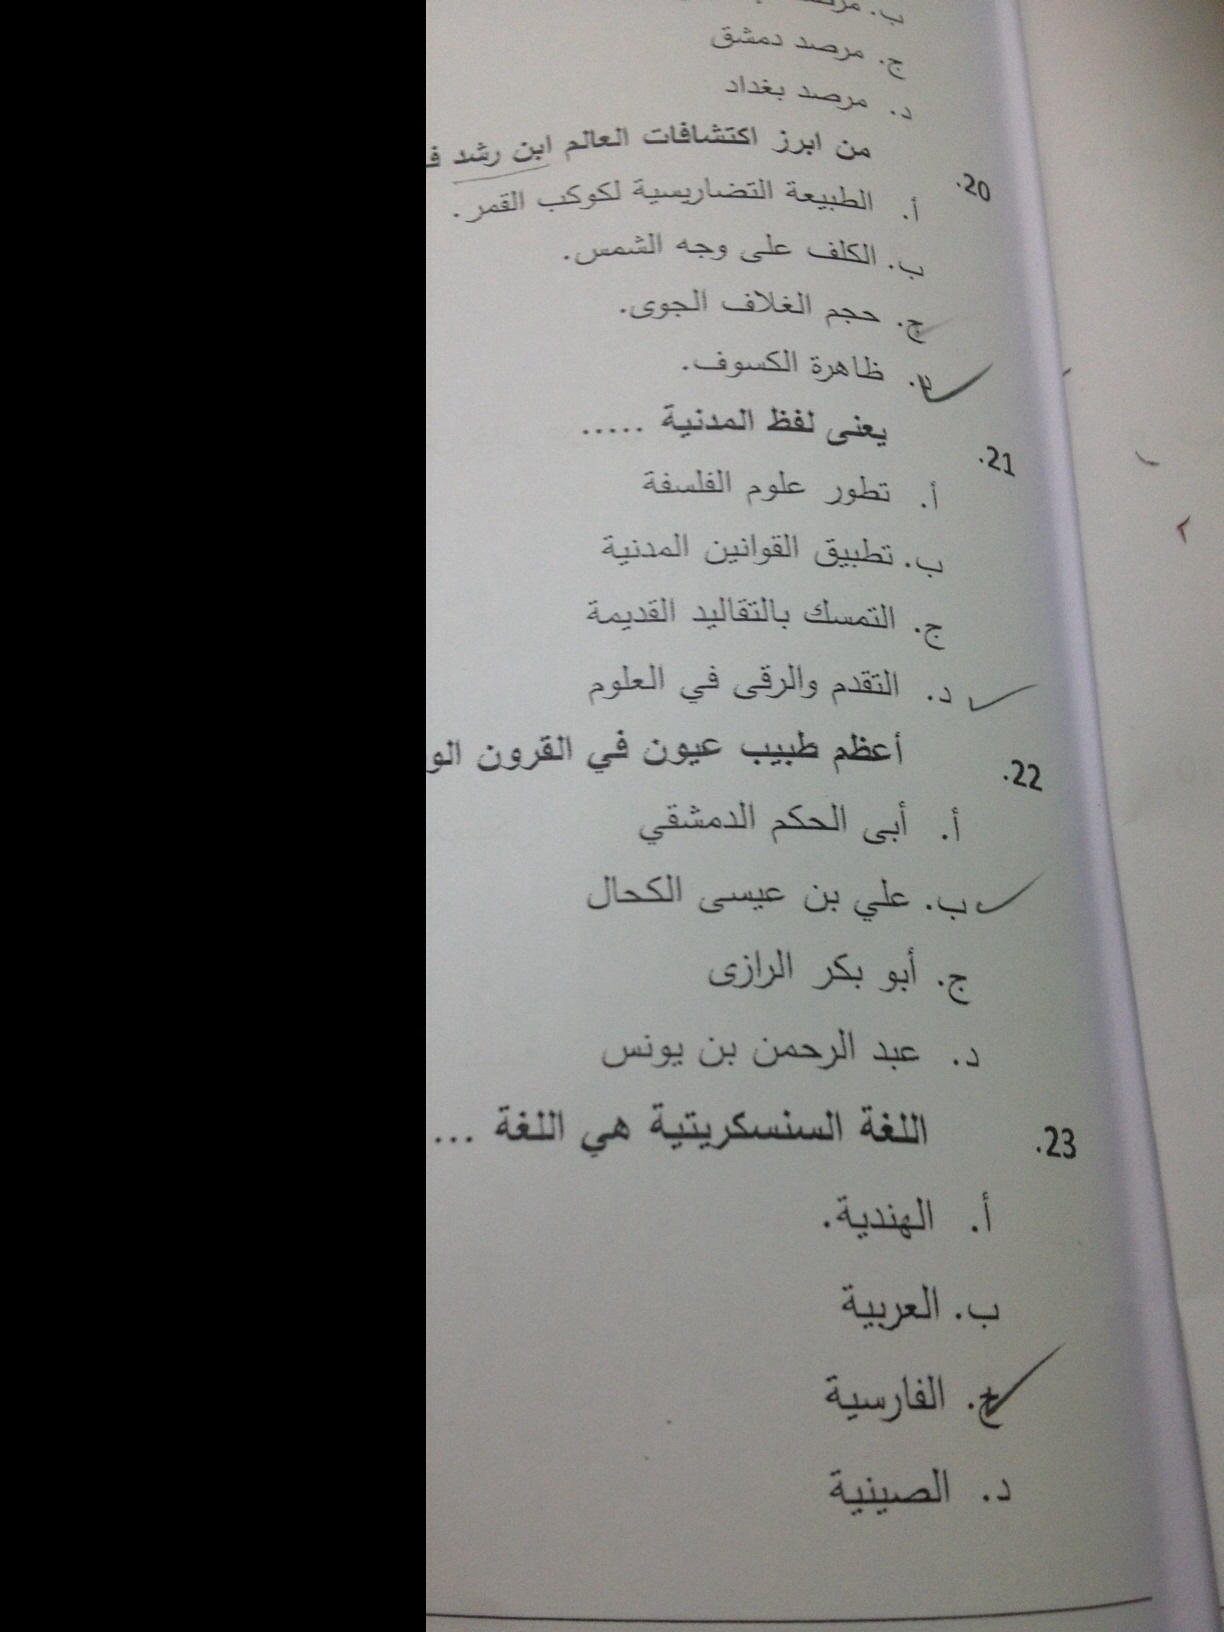 ج. مرصد دمشق
د. مرصد بغداد
20. من ابرز اكتشافات العالم ابن رشد
أ. الطبيعة التضاريسية لكوكب القمر.
ب. الكلف على وجه الشمس.
ج. حجم الغلاف الجوى.
د. ظاهرة الكسوف.
21. يعنى لفظ المدنية .....
أ. تطور علوم الفلسفة
ب. تطبيق القوانين المدنية
ج. التمسك بالتقاليد القديمة
د. التقدم والرقى في العلوم
22. أعظم طبيب عيون في القرون
أ. أبى الحكم الدمشقي
ب. علي بن عيسى الكحال
ج. أبو بكر الرازى
د. عبد الرحمن بن يونس
23. اللغة السنسكريتية هي اللغة ...
أ. الهندية.
ب. العربية
ج. الفارسية
د. الصينية